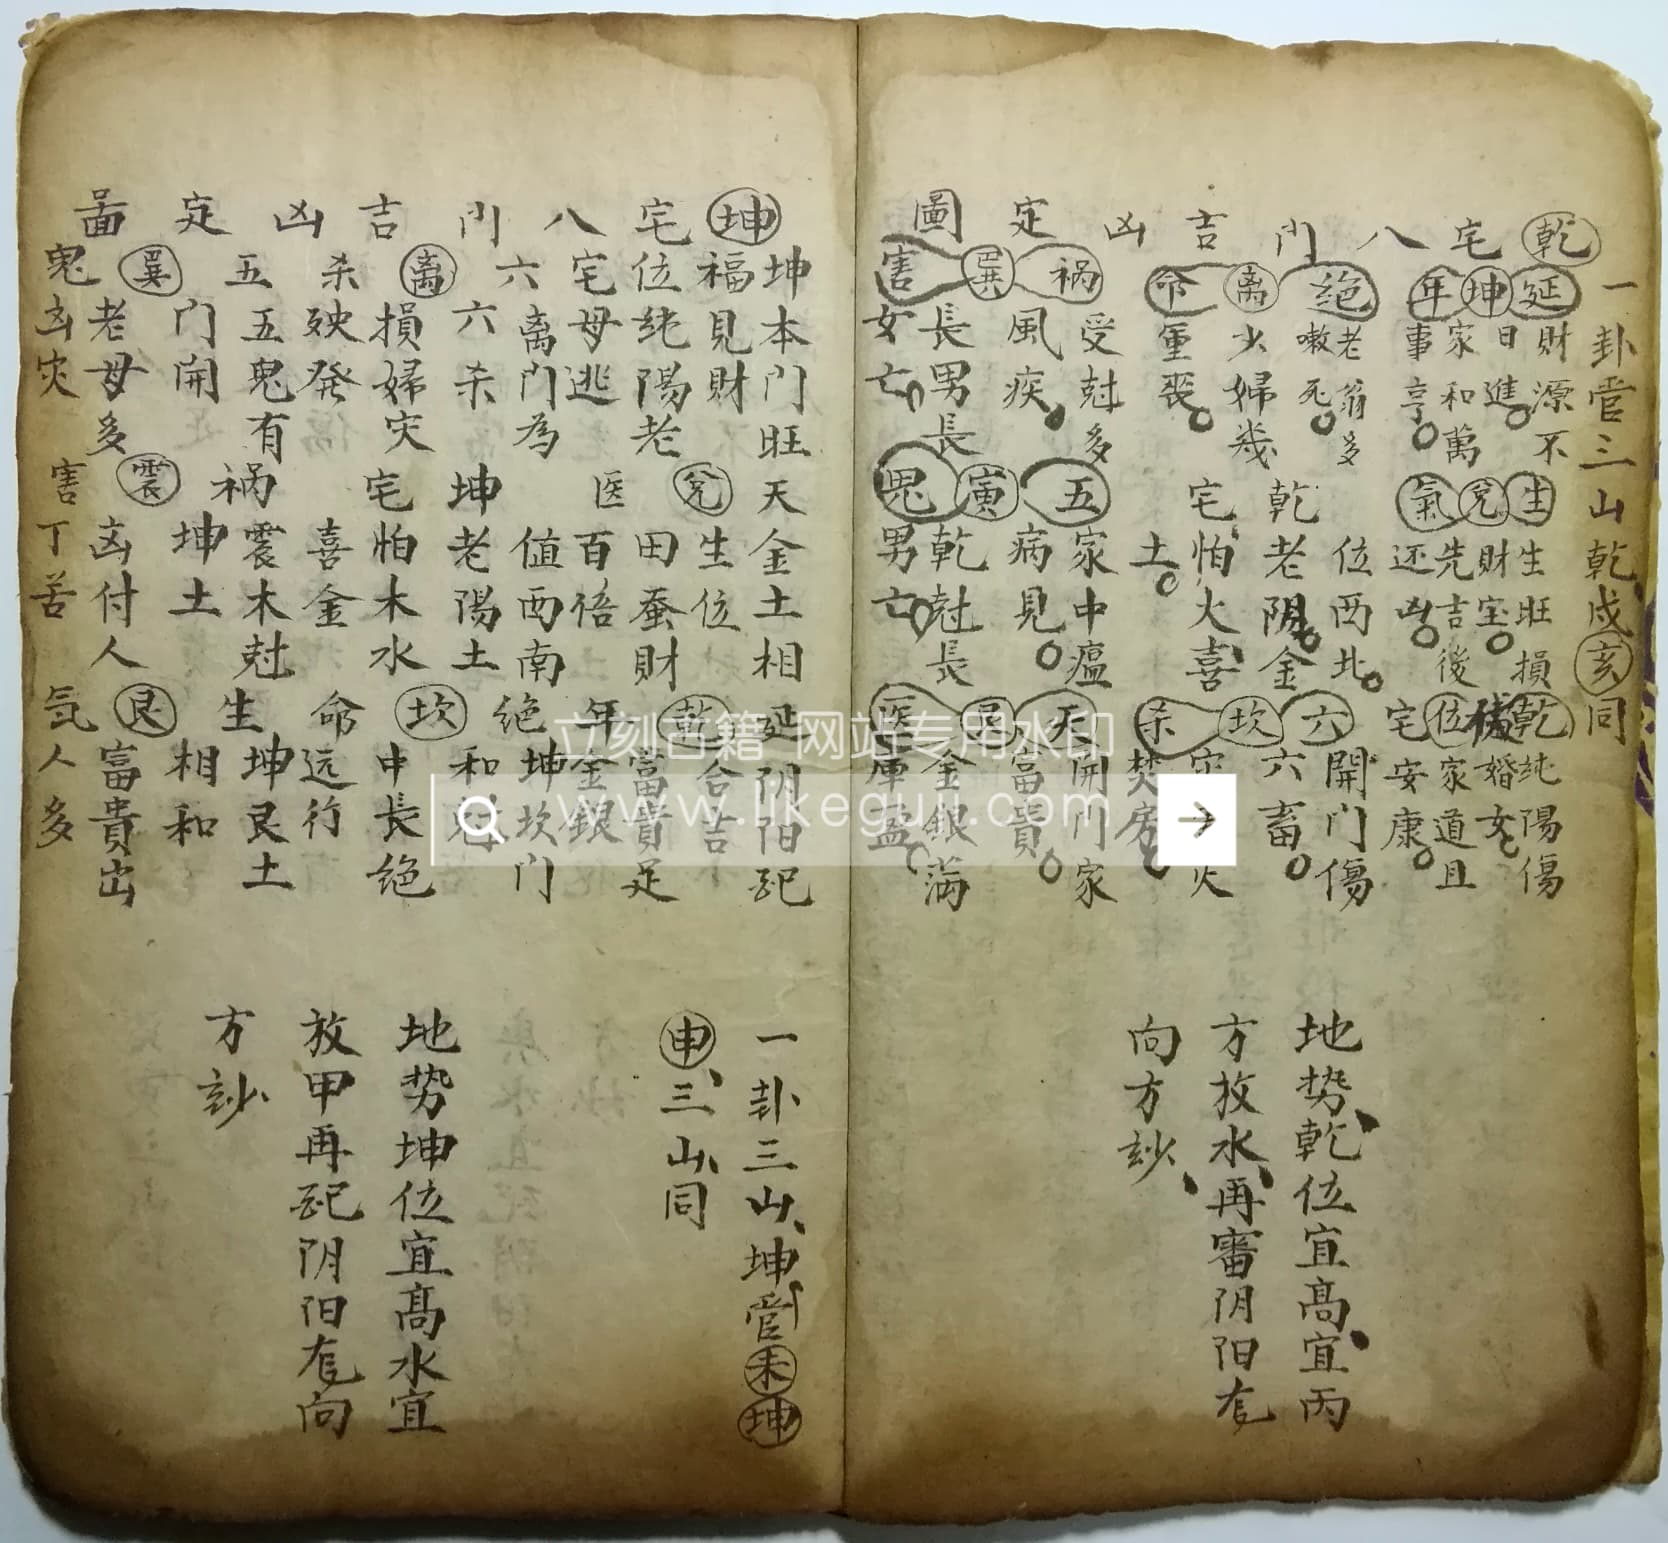 一卦管三山乾戌亥同
乾宅八門吉凶定圖
延坤年
財源不
日進
家和萬
事亨
绝离命
老翁多
嗽死
少婦幾
重喪
祸巽害
受尅多
風疾
長男長
女亡
生兌氣
生旺損
財宝
先吉後
还凶
位西北
乾老陽金
宅怕火喜
土
五寅鬼
家中瘟
病見
乾尅長
男亡
乾位宅
純陽傷
婚女
家道且
安康
六坎杀
開門傷
六畜
灾火
焚房
天艮医
開門家
富貴
金銀滿
庫盈
地势乾位宜高宜丙
方放水再審阴阳龙
向方玅
坤宅八門吉凶定啚
坤本門旺
福見財
位純陽老
宅母逃
六离杀
离門為
六杀
損婦灾
殃発
五巽鬼
五鬼有
门開
老母多
凶灾
天兌医
金土相
生位
田蚕財
百倍
值西南
坤老陽土
宅怕木水
喜金
祸震害
震木尅
坤土
凶付人
丁苦
延乾年
阴阳配
合吉
富貴足
金銀
绝坎命
坤坎门
和尅
中長绝
远行
生艮气
坤艮土
相和
富貴出
人多
一卦三山坤管未坤
申三山同
地势坤位宜高水宜
放甲再配阴阳龙向
方玅
立刻古籍 网站专用水印
www.likegun.com